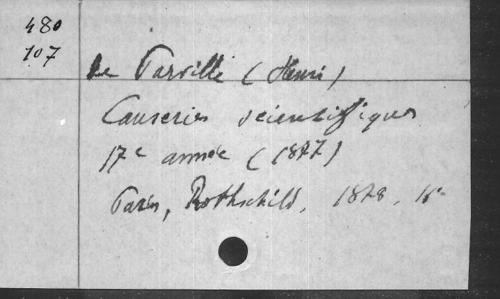 480
107
De Parville (Henri)
Causeries scientifiques
17e année (1877)
Paris, Rothschild, 1878, 16°